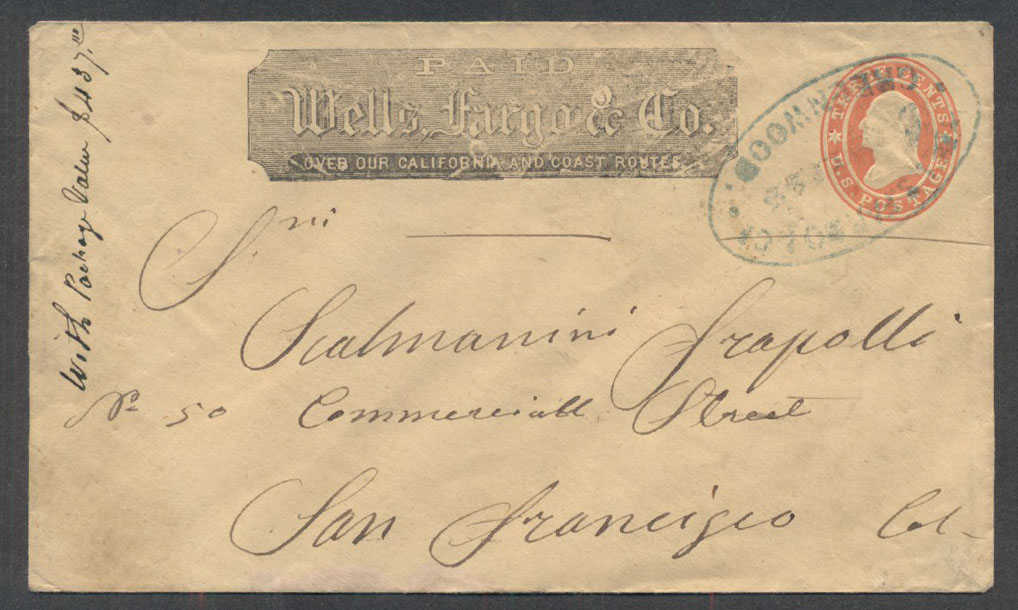 With Package Value $437.00
PAID
Wells, Fargo & Co.
OVER OUR CALIFORNIA AND COAST ROUTES.
THREE CENTS
U.S. POSTAGE
GREENWOOD
Sni
Scalmanini Frapolli
No 50 Commerciall Street
San Francisco Cal-